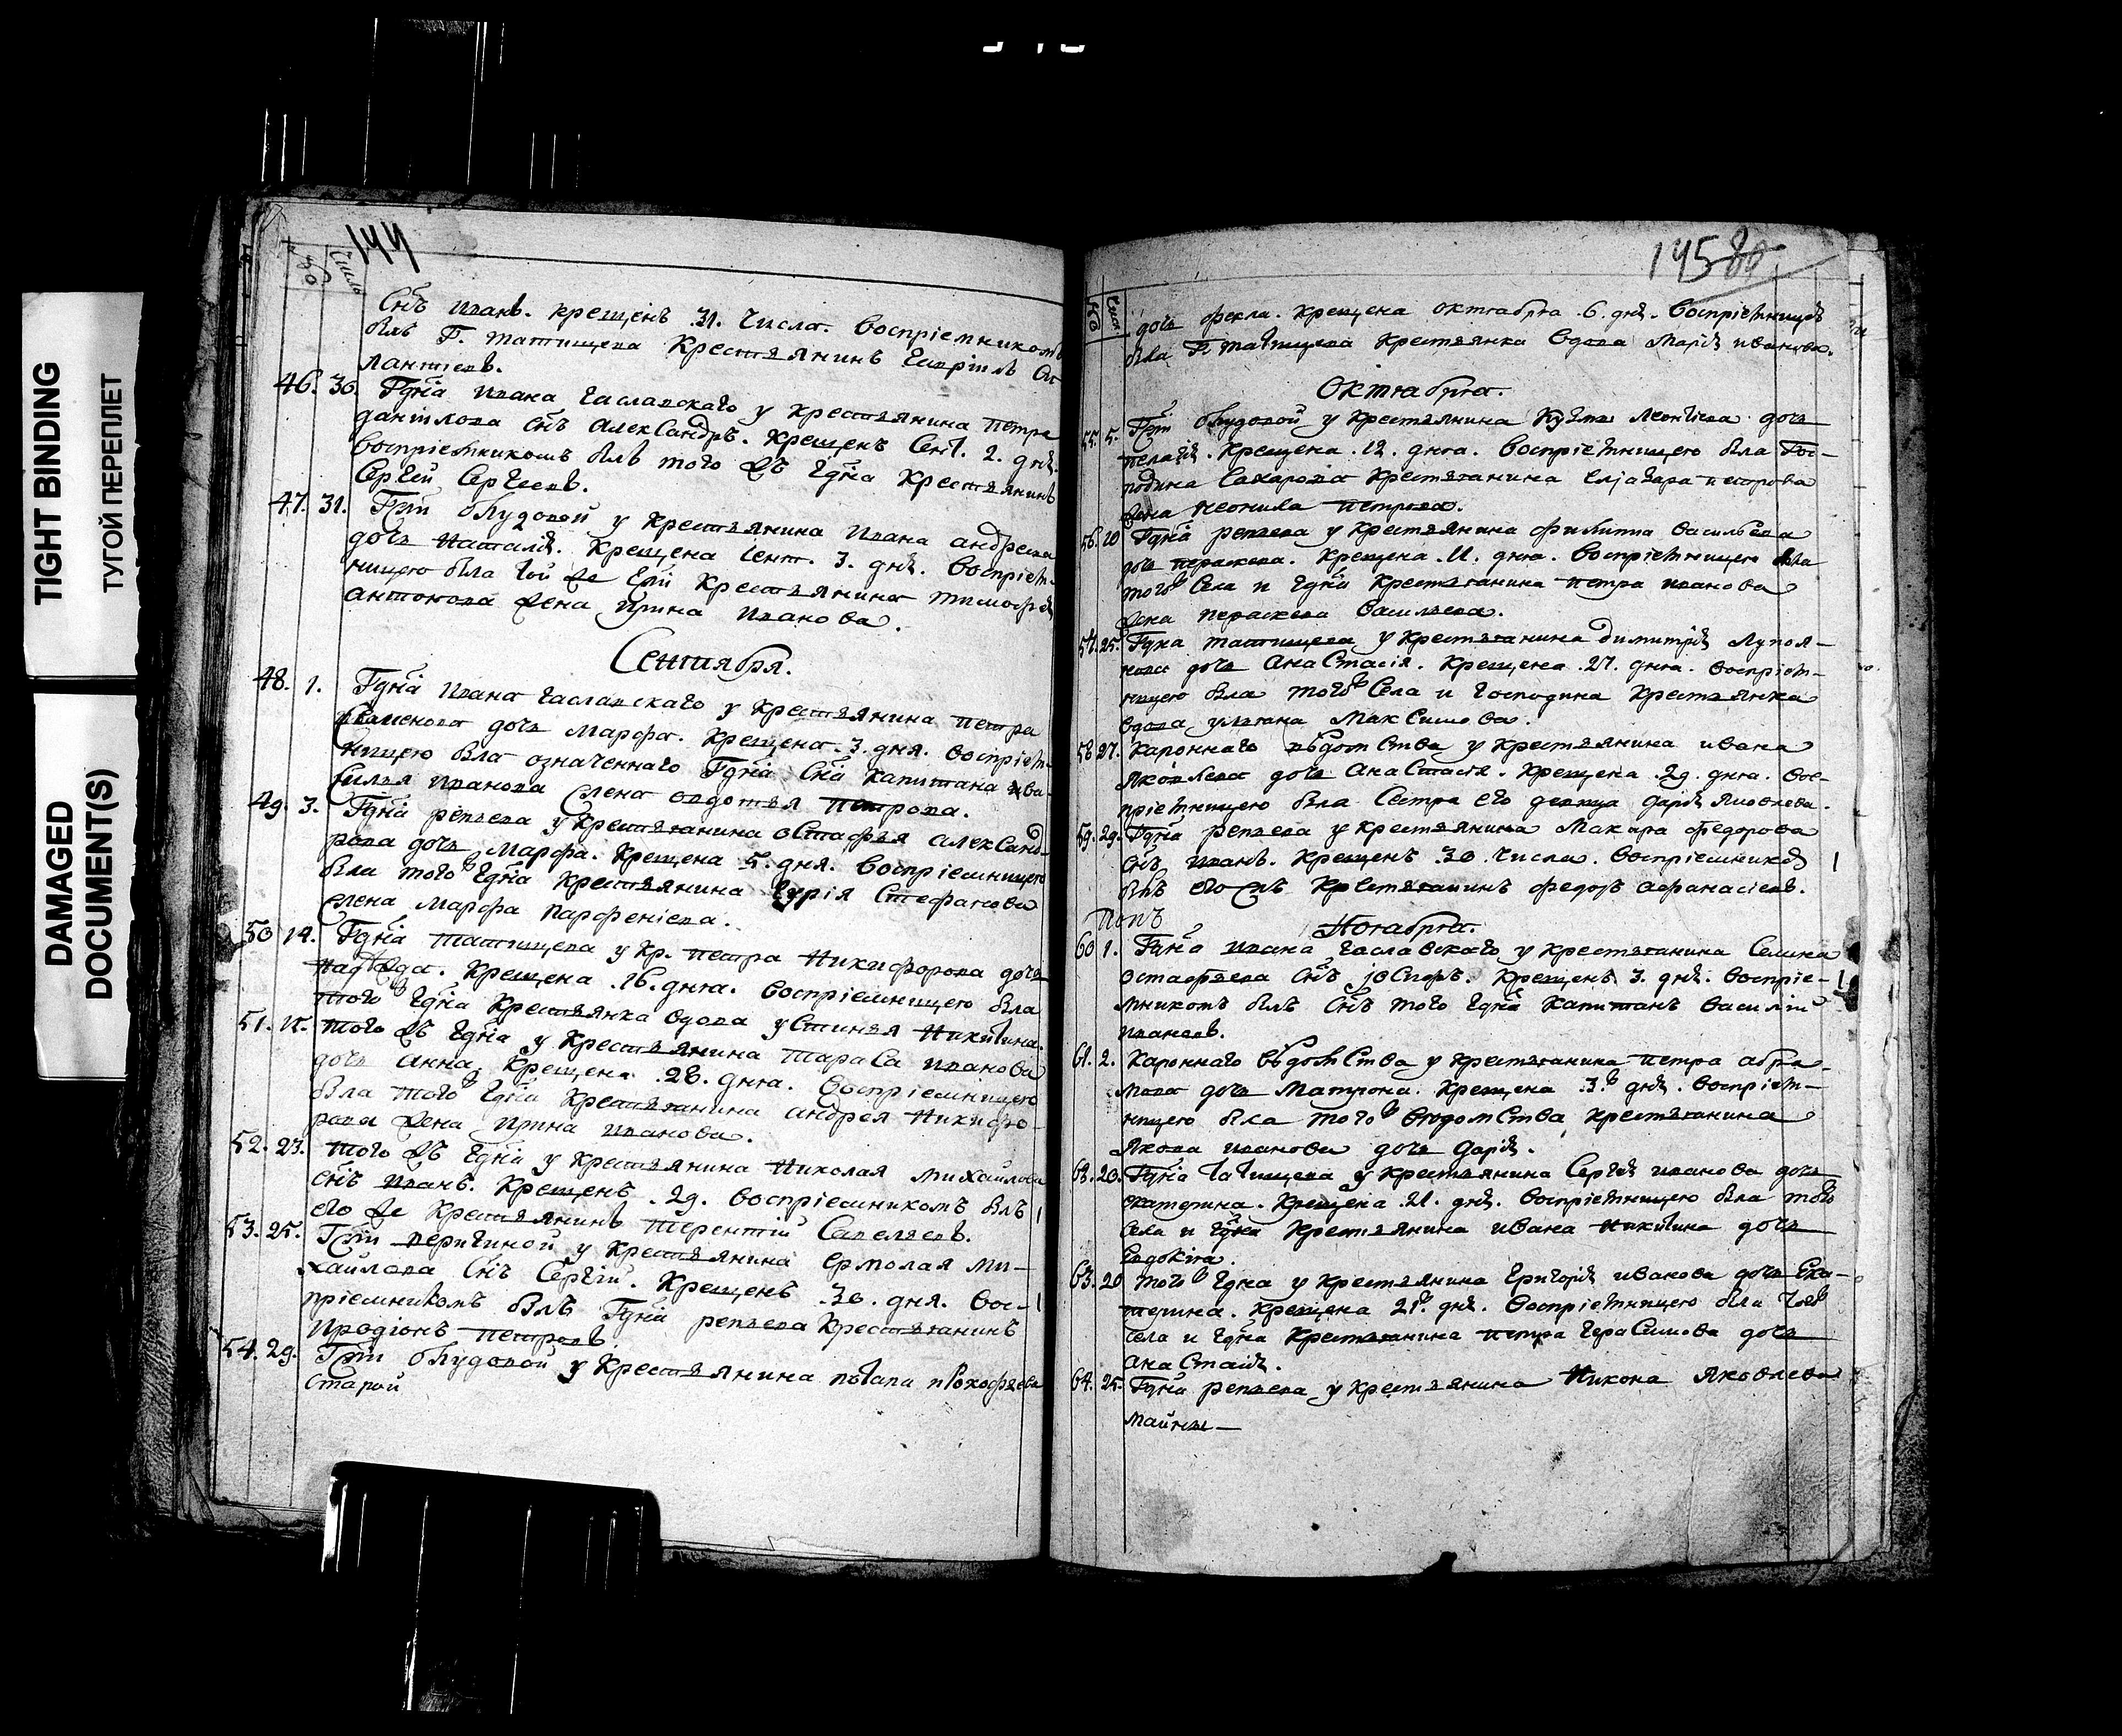 TIGHT BINDING
ТУГОЙ ПЕРЕПЛЕТ
DAMAGED
DOCUMENT(S)
144
Число
Снъ иванъ. крещенъ 31. Числа. воспріемникомъ
былъ Г. татищева Крестьянинъ Гавріилъ
лантіевъ.
46. 30. Гдна ивана Чаславскаго у крестьянина петра
даніилова Снъ Александръ. Крещенъ Сент. 2. дня.
воспріемникомъ былъ того жъ Гдна Крестьянинъ
Сергѣй Сергеевъ.
47. 31. Гжи блудовой у крестьянина ивана андреева
дочь Наталія. Крещена Сент. 3. дня. воспріем-
ницею была той же Гжи крестьянина тимофея
антонова жена ирина иванова.
Сентября.
48. 1. Гдна ивана Чаславскаго у крестьянина петра
дочь марфа. Крещена 3. дня. воспріем-
ницею была означеннаго Гдна Сна капитана
иванова жена авдотья петрова.
49. 3. Гдна репьева у крестьянина остафья александ-
рова дочь марфа. Крещена 5. дня. воспріемницею
была того Гдна Крестьянина Стефанова
жена марфа парфеніева.
50 14. Гдна татищева у кр. петра Никифорова дочь
надежда. Крещена 16. дня. воспріемницею была
того Гдна Крестьянка вдова устинья Никитина.
51. 15. того жъ Гдна у Крестьянина тараса иванова
дочь анна, Крещена 28. дня. воспріемницею
была того Гдна Крестьянина андрея Никифо-
рова жена ирина иванова.
52. 23. того жъ Гдна у Крестьянина Николая михайлова
снъ иванъ. Крещенъ 29. воспріемникомъ былъ
его же Крестьянинъ терентій Савельевъ.
53. 25. Гжи перичиной у Крестьянина ермолая ми-
хайлова Снъ Сергій. Крещенъ 30. дня. вос-
пріемникомъ былъ Гдна репьева Крестьянинъ
иродіонъ петровъ.
54. 29. Гжи блудовой у Крестьянина потапа прокофьева
Старой
145 80
Число
дочь фекла. Крещена октября 6. дня. воспріемницею
была Г татищева крестьянка вдова Марія иванова.
Октября.
55. 5. Гжи блудовой у Крестьянина Кузмы леонтіева дочь
пелагія. Крещена 12. дня. воспріемницею была Гос-
подина Сахарова Крестьянина елизара петрова
жена неонила петрова.
56. 10 Гдна репьева у Крестьянина филиппа васильева
дочь пераскева. Крещена 11. дня. воспріемницею была
того Села и Гдна Крестьянина петра иванова
жена пераскева васильева.
57. 25. Гдна татищева у Крестьянина димитрія лупоя-
нова дочь анастасія. Крещена 27. дня. воспріем-
ницею была того Села и господина крестьянка
вдова ульяна Максимова.
58 27. Кароннаго вѣдомства у крестьянина ивана
яковлева дочь анастасія. Крещена 29. дня. вос-
пріемницею была Сестра его девица дарія яковлева.
59. 29. Гдна репьева у крестьянина Макара федорова
Снъ иванъ. Крещенъ 30. Числа. воспріемникомъ
былъ Крестьянинъ федоръ афанасіевъ.
Попъ
Ноября.
60 1. Гдна ивана Чаславскаго у крестьянина Селина
остафьева Снъ іосифъ. Крещенъ 3. дня. воспріе-
мникомъ былъ Снъ того Гдна капитанъ василій
ивановъ.
61. 2. Кароннаго вѣдомства у крестьянина петра абра-
мова дочь матрона. Крещена 3. дня. воспріем-
ницею была того вѣдомства крестьянина
якова иванова дочь дарія.
62. 20. Гдна татищева у крестьянина Сергѣя иванова дочь
екатерина. Крещена 21. дня. воспріемницею была того
села и Гдна крестьянина ивана никитина дочь
Евдокія.
63. 20 того Гдна у крестьянина Григорія иванова дочь Ека-
терина. Крещена 21. дня. воспріемницею была
села и Гдна Крестьянина петра герасимова дочь
анастасія.
64. 25. Гдна репьева у крестьянина Никона яковлева
майны